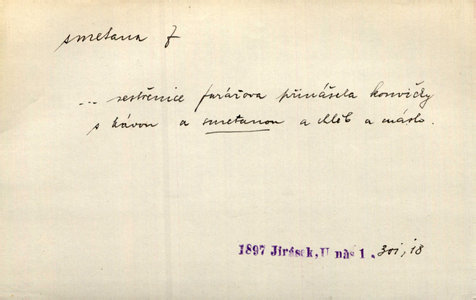 smetana f
... sestřenice farářova přinášela konvičky
s kávou a smetanou a chléb a máslo.
1897 Jirásek, U nás 1, 301, 18